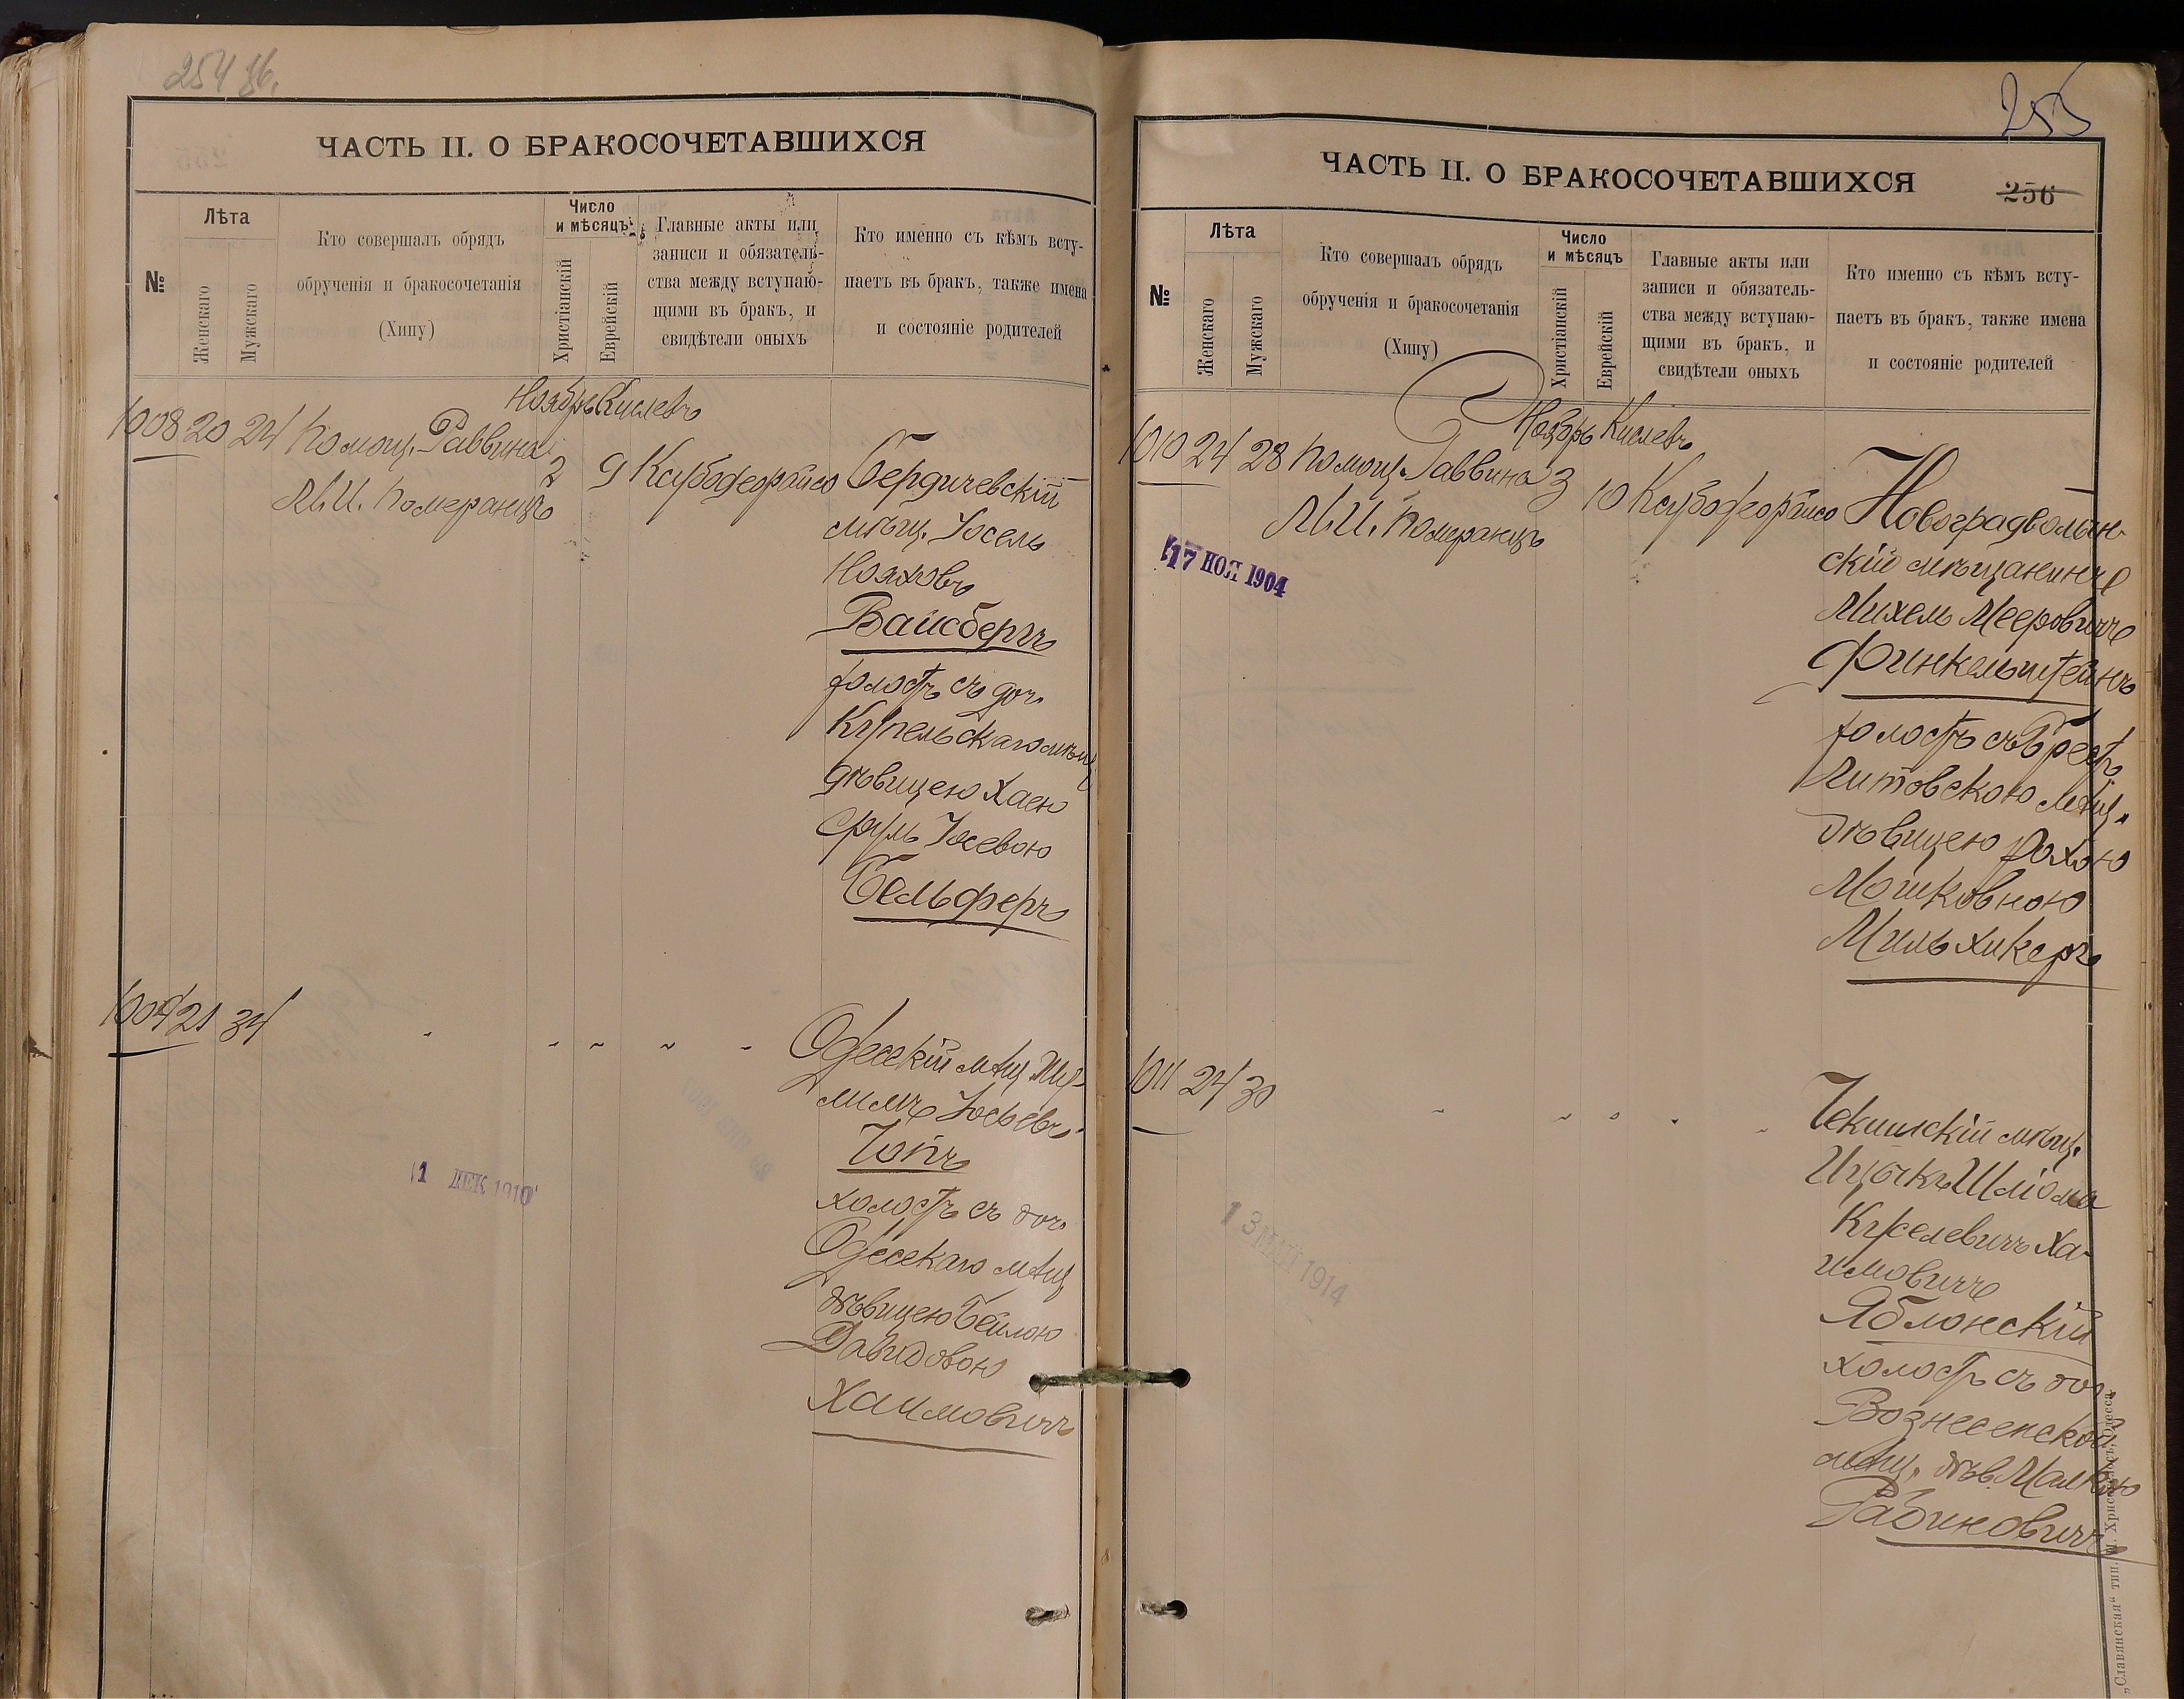 254 зб.
ЧАСТЬ II. О БРАКОСОЧЕТАВШИХСЯ
№
Лѣта
Женскаго
Мужскаго
Кто совершалъ обрядъ
обрученія и бракосочетанія
(Хипу)
Число
и мѣсяцъ
Христіанскій
Еврейскій
Главные акты или
записи и обязатель-
ства между вступаю-
щими въ бракъ, и
свидѣтели оныхъ
Кто именно съ кѣмъ всту-
паетъ въ бракъ, также имена
и состояніе родителей
Ноябрь Кислевъ
1008 20 24 Помощ. Раввина 2 9
М. И. Померанцъ
Бердичевскій
мѣщ. Іосель
Нояховъ
Вайсбергъ
холостъ съ доч.
Купельскаго мѣщ
дѣвицею Хаею
Сруль Іосевою
Бельферъ
1009 21 34 " " " " "
Одесскій мѣщ
Іосифовъ
холостъ съ доч.
Одесскаго мѣщ
дѣвицею Бейлою
Давидовою
Хаимовичъ
1 ДЕК 1910
255
ЧАСТЬ II. О БРАКОСОЧЕТАВШИХСЯ
256
№
Лѣта
Женскаго
Мужскаго
Кто совершалъ обрядъ
обрученія и бракосочетанія
(Хипу)
Число
и мѣсяцъ
Христіанскій
Еврейскій
Главные акты или
записи и обязатель-
ства между вступаю-
щими въ бракъ, и
свидѣтели оныхъ
Кто именно съ кѣмъ всту-
паетъ въ бракъ, также имена
и состояніе родителей
Ноябрь Кислевъ
1010 24 28 Помощ. Раввина 3 10
М. И. Померанцъ
17 НОЯ 1904
Новоградволын-
скій мѣщанинъ
Михель Мееровичъ
Финкельштейнъ
холостъ съ Брестъ
Литовскою мѣщ.
дѣвицею Рохею
Мошковною
Мильхикеръ
1011 24 30 " " " " "
мѣщ.
Ицыкъ Шліома
Куселевичъ Ха-
имовичъ
Яблонскій
холостъ съ доч.
Вознесенской
мѣщ. дѣв. Малкою
Рабиновичъ
13 МАЙ 1914
„Славянская“ тип. Н. Хрисогелосъ, Одесса